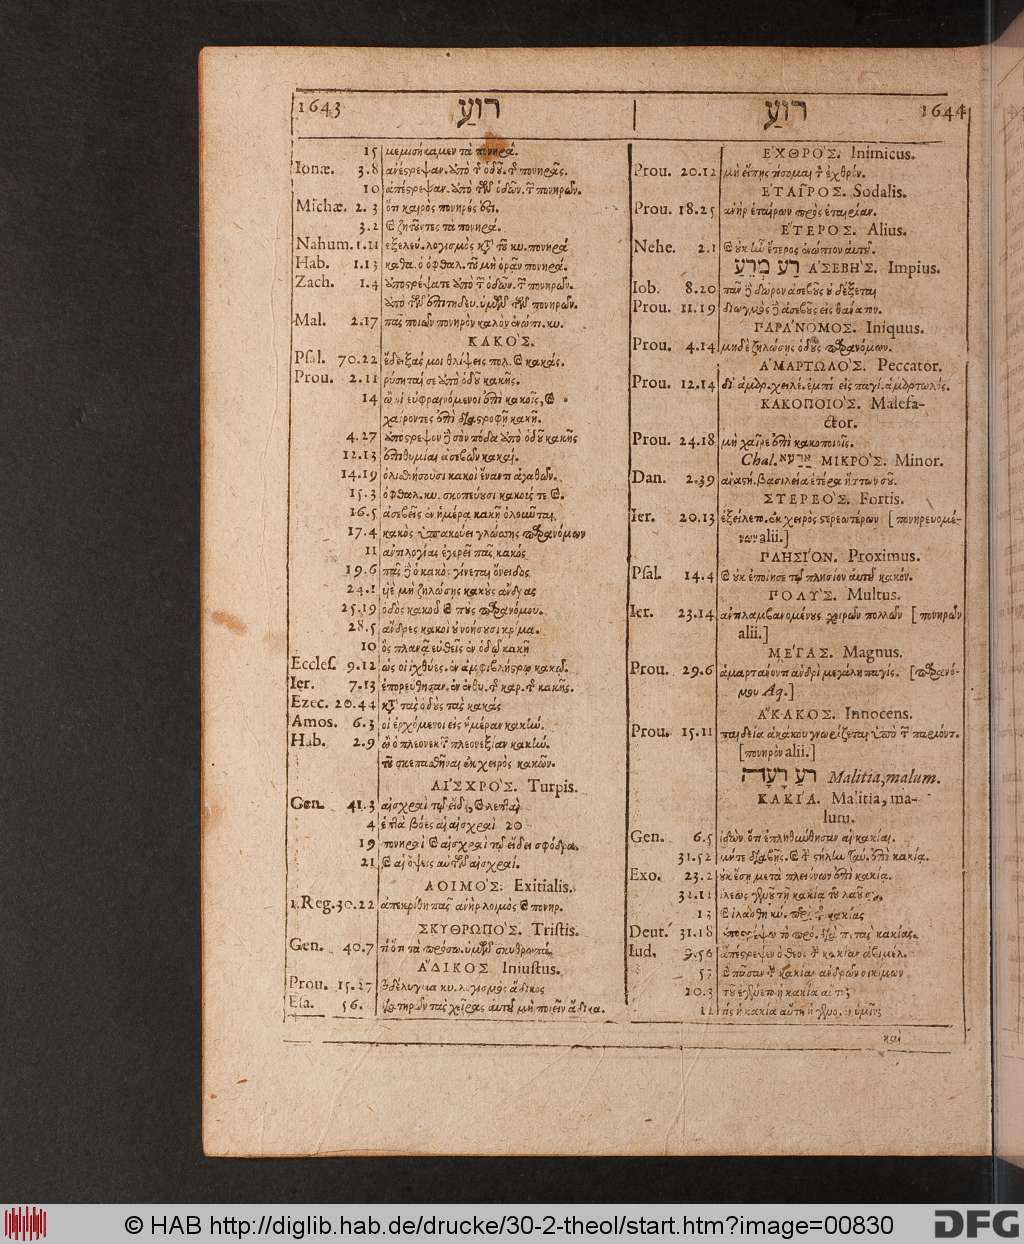 1643 רוע
15 μεμισήκαμεν τὰ πονηρά.
Ionæ. 3.8 ἀνέστρεψαν. ἀπὸ τ ὁδοῦ. τ πονηρᾶς.
10 ἀπέστρεψαν. ἀπὸ τῶν ὁδῶν. τ πονηρῶν.
Michæ. 2.3 ὅτι καιρὸς πονηρός ἐστι.
3.2 ζητοῦντες τὰ πονηρά.
Nahum. 1.11 ἐξελεύ. λογισμὸς κατὰ τοῦ κυ. πονηρά
Hab. 1.13 καθα. ὁ ὀφθαλ. τοῦ μὴ ὁρᾶν πονηρά.
Zach. 1.4 ἀποστρέψατε ἀπὸ τ ὁδῶν. τ πονηρῶν.
ἀπὸ τῶν ἐπιτηδευ. ὑμῶν τῶν πονηρῶν.
Mal. 2.17 πᾶς ποιῶν πονηρὸν καλὸν ἐνώπι. κυ.
ΚΑΚΟΣ.
Psal. 70.22 ἔδειξάς μοι θλίψεις πολ. καὶ κακάς.
Prou. 2.11 ῥύσηταί σε ἀπὸ ὁδοῦ κακῆς.
14 ὢ οἱ εὐφραινόμενοι ἐπὶ κακοῖς, καὶ
χαίροντες ἐπὶ διαστροφῇ κακῇ.
4.27 ἀπόστρεψον δὲ σὸν πόδα ἀπὸ ὁδοῦ κακῆς
12.13 ἐπιθυμίαι ἀσεβῶν κακαί.
14.19 ὀλισθήσουσι κακοὶ ἔναντι ἀγαθῶν.
15.3 ὀφθαλ. κυ. σκοπεύουσι κακούς τε καὶ.
16.5 ἀσεβεῖς ἐν ἡμέρα κακῇ ὀλοῦνται.
17.4 κακὸς ὑπακούει γλώσσης παρανόμων
11 ἀντιλογίας ἐγερεῖ πᾶς κακὸς
19.6 πᾶς δὲ ὁ κακὸς γίνεται ὄνειδος
24.1 υἱὲ μὴ ζηλώσῃς κακοὺς ἄνδρας
25.19 ὁδὸς κακοῦ καὶ ποὺς παρανόμου.
28.5 ἄνδρες κακοὶ οὐ νοήσουσι κρίμα.
10 ὃς πλανᾷ εὐθεῖς ἐν ὁδῷ κακῇ
Eccles. 9.12 ὡς οἱ ἰχθύες. ἐν ἀμφιβλήστρῳ κακῷ.
Ier. 7.13 ἐπορεύθησαν. ἐν ἐνθυ. τ καρ. τ κακῆς.
Ezec. 20.44 κατὰ τὰς ὁδοὺς τὰς κακάς
Amos. 6.3 οἱ ἐρχόμενοι εἰς ἡμέραν κακήν.
Hab. 2.9 ὢ ὁ πλεονεκτ πλεονεξίαν κακήν.
τοῦ σκεπασθῆναι ἐκ χειρὸς κακῶν.
ΑΙΣΧΡΟΣ. Turpis.
Gen. 41.3 αἰσχραὶ τῷ εἴδει, καὶ λεπταὶ
4 ἑπτὰ βόες αἱ αἰσχραὶ 20
19 πονηραὶ καὶ αἰσχραὶ τῷ εἴδει σφόδρα.
21 καὶ αἱ ὄψεις αὐτῶν αἰσχραί.
ΛΟΙΜΟΣ. Exitialis.
1.Reg. 30.22 ἀπεκρίθη πᾶς ἀνὴρ λοιμὸς καὶ πονηρ.
ΣΚΥΘΡΩΠΟΣ. Tristis.
Gen. 40.7 τί ὅτι τὰ πρόσω. ὑμῶν σκυθρωπά.
ΑΔΙΚΟΣ Iniustus.
Prou. 15.27 βδέλυγμα κυ. λογισμὸς ἄδικος
Esa. 56. διατηρῶν τὰς χεῖρας αὐτοῦ μὴ ποιεῖν ἄδικα.
רוע 1644
ΕΧΘΡΟΣ. Inimicus.
Prou. 20.12 μὴ εἴπῃς τίσομαι τ ἐχθρόν.
ΕΤΑΙΡΟΣ. Sodalis.
Prou. 18.25 ἀνὴρ ἑταίρων πρὸς ἑταιρίαν.
ΕΤΕΡΟΣ. Alius.
Nehe. 2.1 καὶ οὐκ ἦν ἕτερος ἐνώπιον αὐτοῦ.
רע מרע ΑΣΕΒΗΣ. Impius.
Iob. 8.20 πᾶν δὲ δῶρον ἀσεβοῦς οὐ δέξεται
Prou. 11.19 διωγμὸς δὲ ἀσεβοῦς εἰς θάνατον.
ΠΑΡΑΝΟΜΟΣ. Iniquus.
Prou. 4.14 μηδὲ ζηλώσῃς ὁδοὺς παρανόμων.
ΑΜΑΡΤΩΛΟΣ. Peccator.
Prou. 12.14 δι' ἁμαρ. χειλέ. ἐμπί. εἰς παγί. ἁμαρτωλός.
ΚΑΚΟΠΟΙΟΣ. Malefa-
ctor.
Prou. 24.18 μὴ χαῖρε ἐπὶ κακοποιοῖς.
Chal. ארעא ΜΙΚΡΟΣ. Minor.
Dan. 2.39 ἀναστή. βασιλεία ἑτέρα ἥττων σοῦ.
ΣΤΕΡΕΟΣ. Fortis.
Ier. 20.13 ἐξείλετο. ἐκ χειρὸς στερεωτέρων [ πονηρευομέ-
νων alii.]
ΠΛΗΣΙΟΝ. Proximus.
Psal. 14.4 καὶ οὐκ ἐποίησε τῷ πλησίον αὐτοῦ κακόν.
ΠΟΛΥΣ. Multus.
Ier. 23.14 ἀντιλαμβανομένους χειρῶν πολλῶν [ πονηρῶν
alii.]
ΜΕΓΑΣ. Magnus.
Prou. 29.6 ἁμαρτάνοντι ἀνδρὶ μεγάλη παγίς. [παρανό-
μου Aq.]
ΑΚΑΚΟΣ. Innocens.
Prou. 15.11 παιδεία ἀκάκου γνωρίζεται ὑπὸ τ παριόντ.
[πονηρόν alii.]
רע רעה Malitia, malum.
ΚΑΚΙΑ. Malitia, ma-
lum.
Gen. 6.5 ἰδών. ὅτι ἐπληθύνθησαν αἱ κακίαι.
31.52 μήτε διαβῇς. ἐπὶ κακίᾳ.
Exo. 23.2 οὐκ ἔσῃ μετὰ πλειόνων ἐπὶ κακίᾳ.
32.11 ἵλεως γενοῦ τῇ κακίᾳ τοῦ λαοῦ
13 καὶ ἱλάσθη κύ. περὶ τ κακίας
Deut. 31.18 ἀποστρέψω τὸ πρό. διὰ π. τὰς κακίας.
Iud. 9.56 ἀπέστρεψεν ὁ θεὸς τ κακίαν ἀβιμελ.
57 καὶ πᾶσαν τ κακίαν ἀνδρῶν σικίμων
20.3 ποῦ ἐγένετο ἡ κακία αὕτη;
12 τίς ἡ κακία αὕτη ἡ γενο. ἐν ὑμῖν;
καὶ
© HAB http://diglib.hab.de/drucke/30-2-theol/start.htm?image=00830
DFG